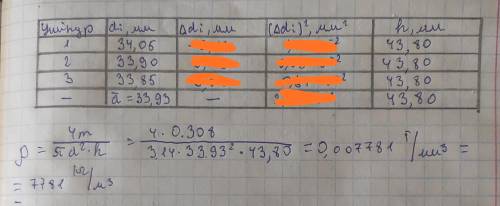 Уміпур di, мм Δdi, мм (Δdi)², мм² h, мм
1 34,05 43,80
2 33,90 43,80
3 33,85 43,80
— d̄ = 33,93 — 43,80
ρ = 4m / πd²·h = 4·0.308 / 3,14·33.93²·43,80 = 0,007781 г/мм³ =
= 7781 кг/м³